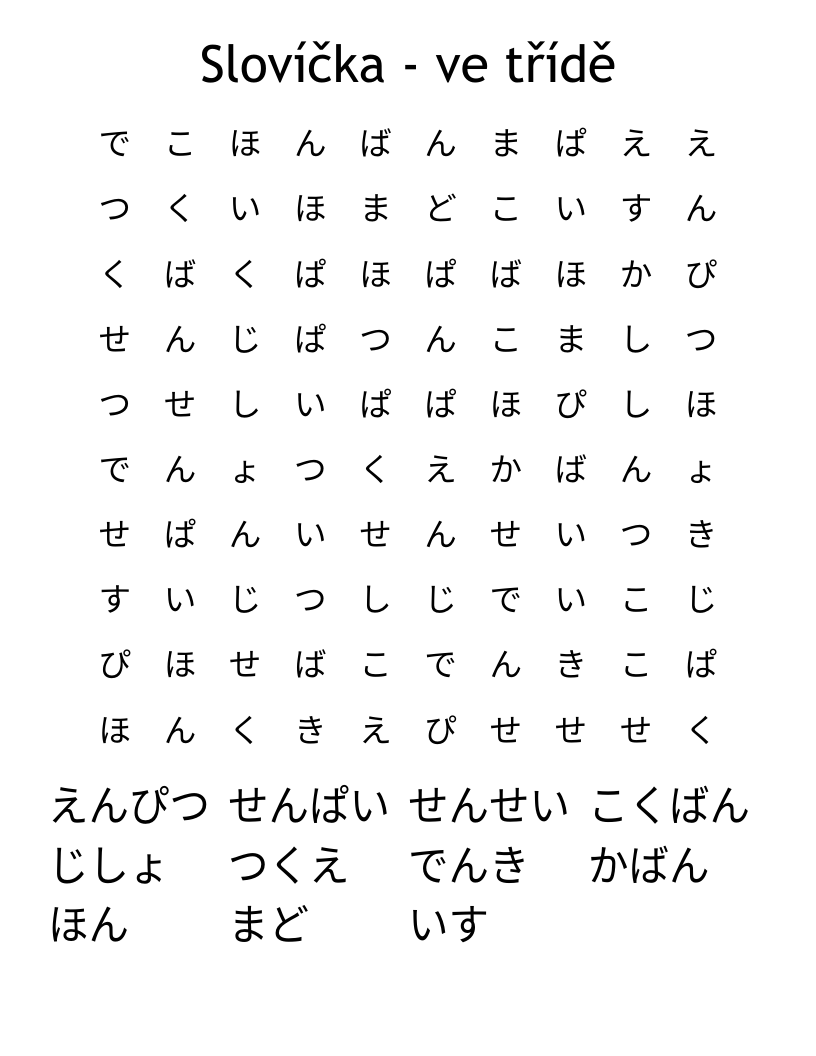 Slovíčka - ve třídě
で こ ほ ん ば ん ま ぱ え え
つ く い ほ ま ど こ い す ん
く ば く ぱ ほ ぱ ば ほ か ぴ
せ ん じ ぱ つ ん こ ま し つ
つ せ し い ぱ ぱ ほ ぴ し ほ
で ん ょ つ く え か ば ん ょ
せ ぱ ん い せ ん せ い つ き
す い じ つ し じ で い こ じ
ぴ ほ せ ば こ で ん き こ ぱ
ほ ん く き え ぴ せ せ せ く
えんぴつ せんぱい せんせい こくばん
じしょ つくえ でんき かばん
ほん まど いす